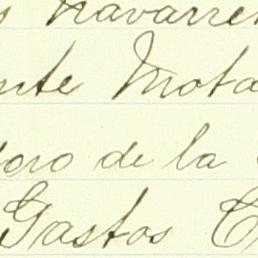 s Navarre
nte Mota
oro de la
Gastos C